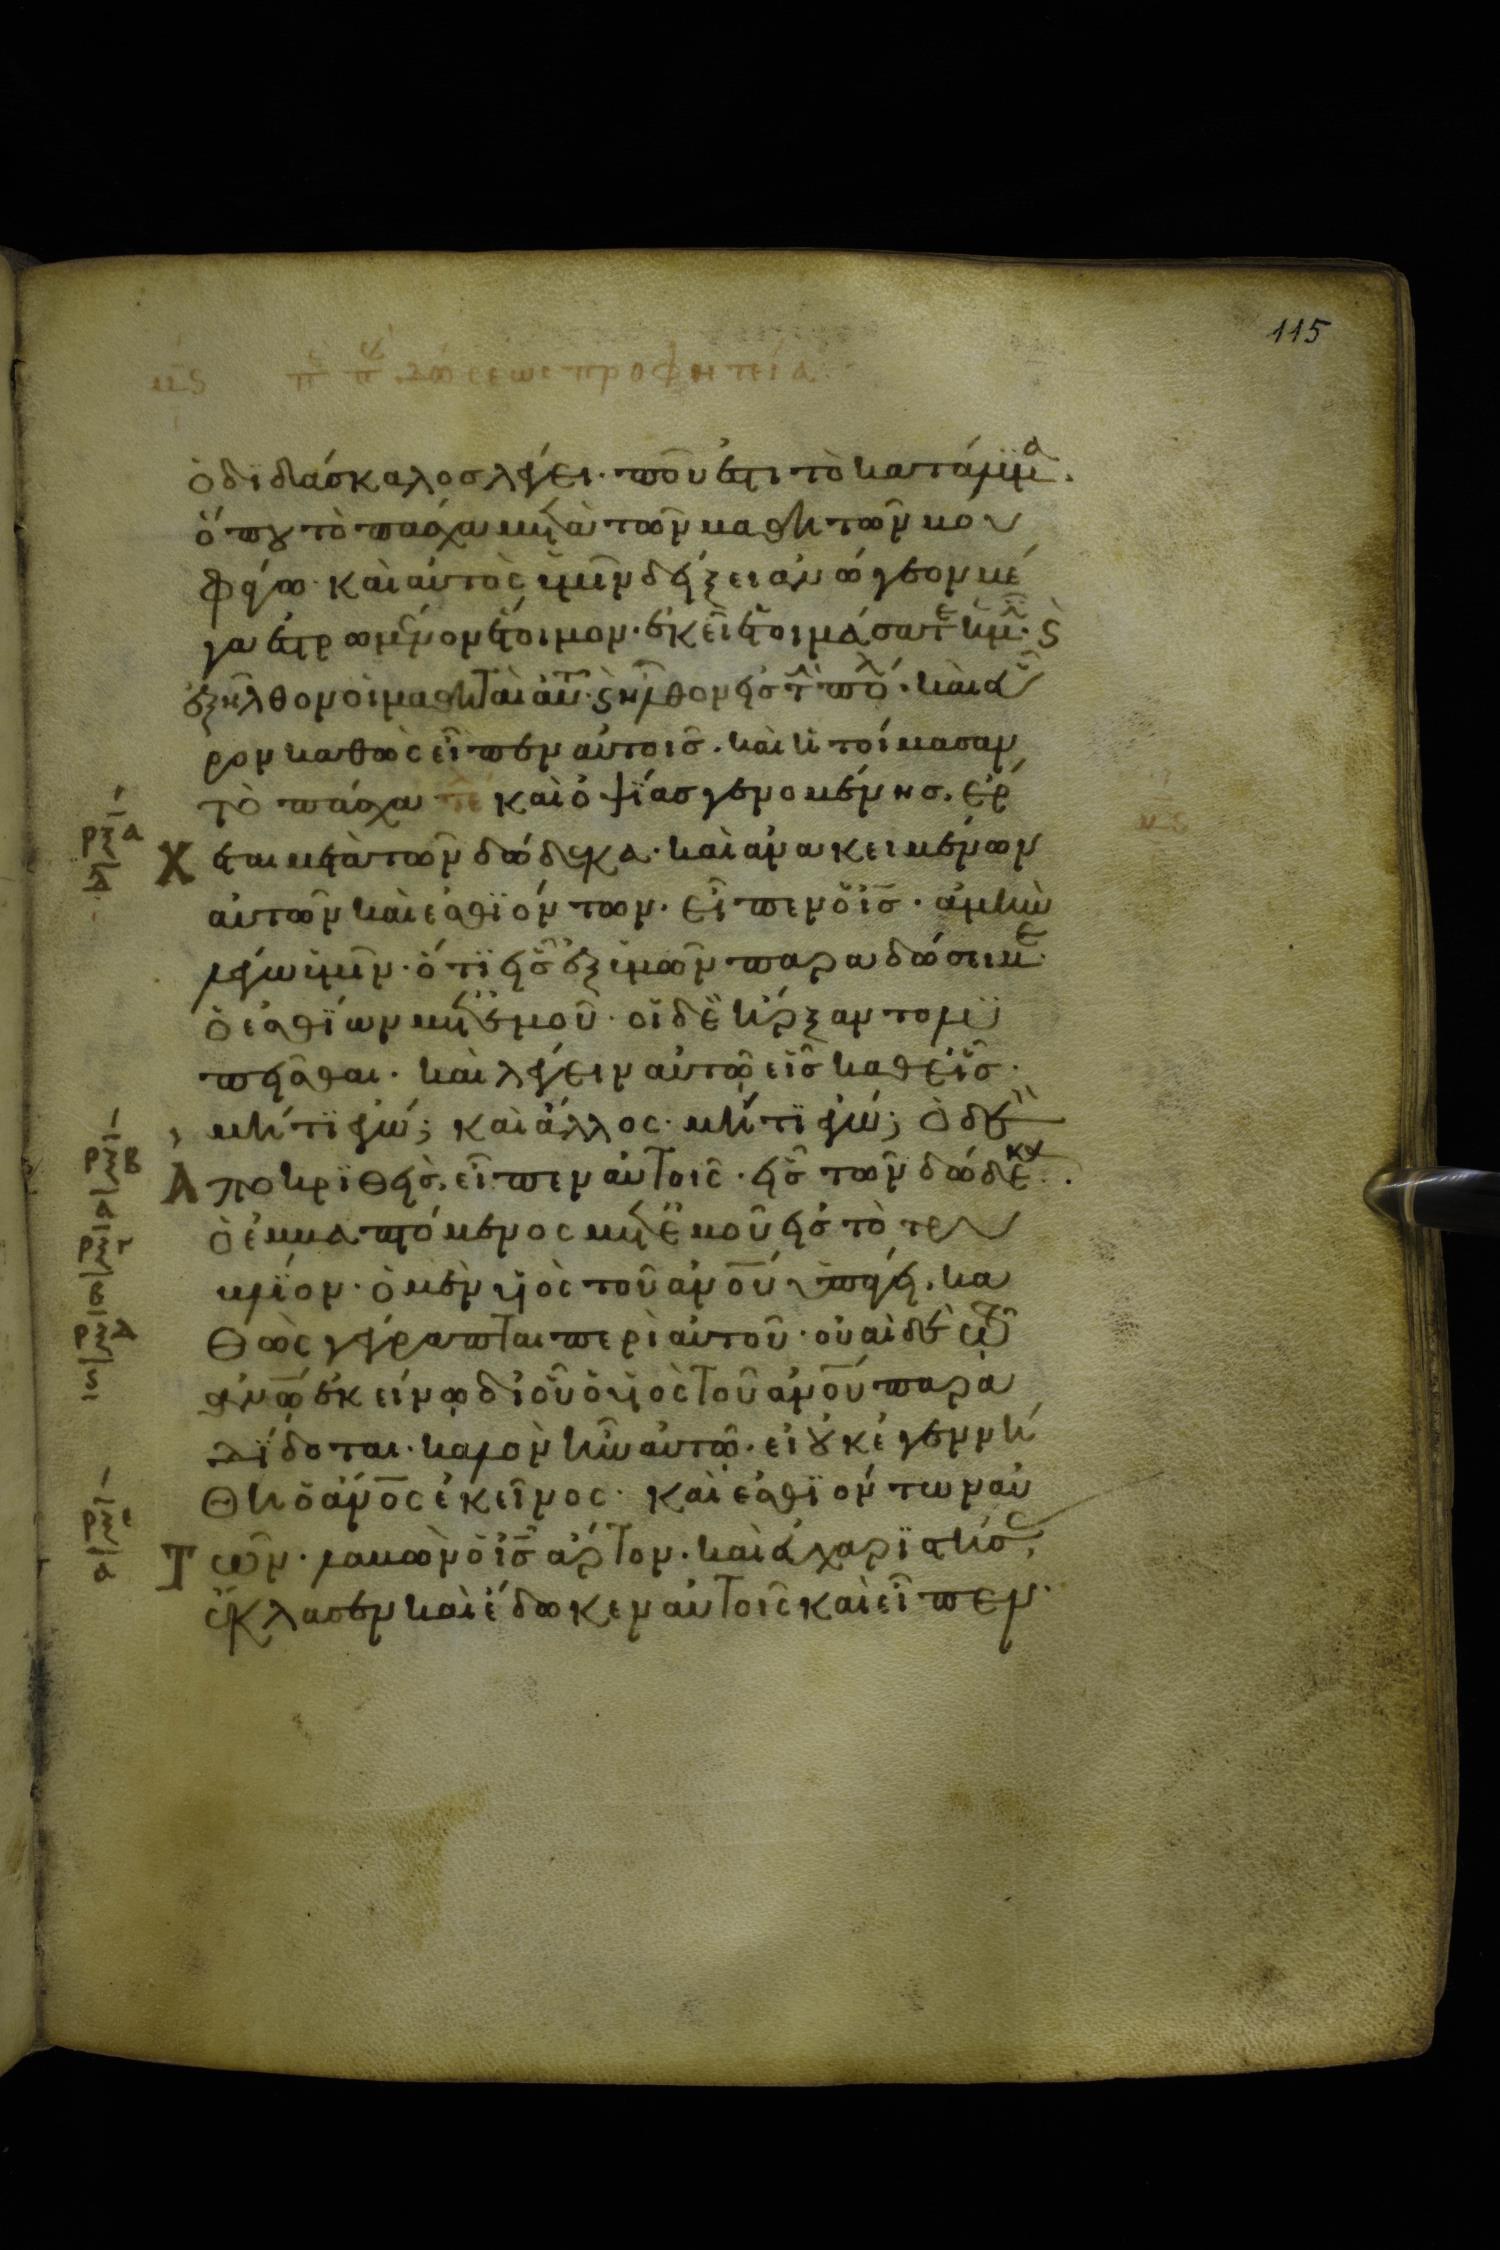 115
μς π π δώσεως προφητεία
ὁ διδάσκαλος λέγει· ποῦ ἐστι τὸ κατάλυμα.
ὅπου τὸ πάσχα μετὰ τῶν μαθητῶν μου
φάγω· καὶ αὐτὸς ὑμῖν δείξει ἀνώγεον μέ
γα ἐστρωμένον ἕτοιμον· ἐκεῖ ἑτοιμάσατε ἡμῖν· ϛ
ἐξῆλθον οἱ μαθηταὶ αὐτοῦ· ϛ ἦλθον εἰς τὴν πόλ· καὶ εὗ
ρον καθὼς εἶπεν αὐτοῖς. καὶ ἡτοίμασαν
τὸ πάσχα καὶ ὀψίας γενομένης. ἔρ
ρξα
δ
χεται μετὰ τῶν δώδεκα· καὶ ἀνακειμένων
αὐτῶν καὶ ἐσθιόντων. εἶπεν ὁ ις̅. ἀμὴν
λέγω ὑμῖν· ὅτι εἷς ἐξ ὑμῶν παραδώσει με·
ὁ ἐσθίων μετ' ἐμοῦ· οἱ δὲ ἤρξαντο λυ
πεῖσθαι. καὶ λέγειν αὐτῷ εἷς καθ εἷς·
μήτι ἐγώ; καὶ ἄλλος· μήτι ἐγώ; ὁ δὲ
ρξβ
α
Αποκριθεὶς εἶπεν αὐτοῖς· εἷς τῶν δώδεκα.
ὁ ἐμβαπτόμενος μετ' ἐμοῦ εἰς τὸ τρυ
ρξγ
β
βλίον· ὁ μὲν υἱὸς τοῦ αν̅ου ὑπάγει. κα
ρξδ
ς
θὼς γέγραπται περὶ αὐτοῦ· οὐαὶ δὲ τῷ
αν̅ω ἐκείνῳ δι οὗ ὁ υἱὸς τοῦ αν̅ου παρα
δίδοται· καλὸν ἦν αὐτῷ· εἰ οὐκ ἐγεννή
θη ὁ αν̅ος ἐκεῖνος· καὶ ἐσθιόντων αὐ
ρξε
α
Τῶν· λαβὼν ὁ ις̅ ἄρτον. καὶ εὐχαριστήσας,
ἔκλασεν καὶ ἔδωκεν αὐτοῖς καὶ εἶπεν·